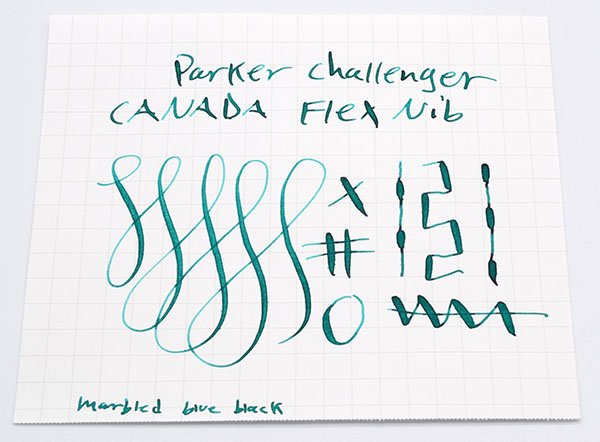 Parker Challenger
CANADA Flex Nib
marbled blue black